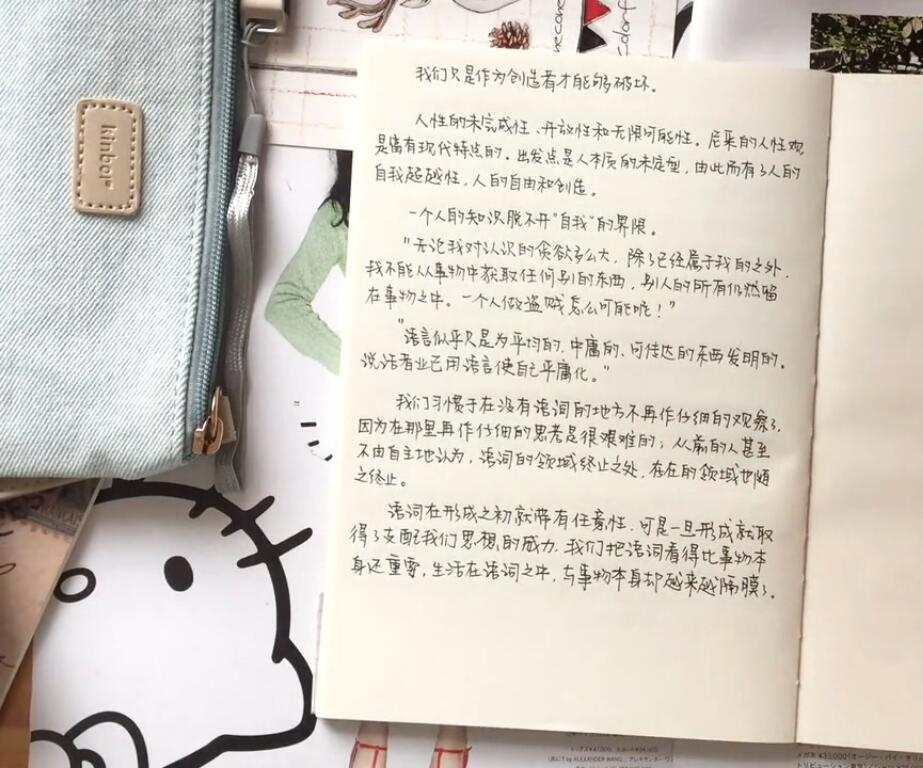 kinbor
我们只是作为创造者才能够破坏。
人性的未完成性、开放性和无限可能性。尼采的人性观
是富有现代特点的。出发点是人本质的未定型,由此而有了人的
自我超越性,人的自由和创造。
一个人的知识脱不开“自我”的界限。
“无论我对认识的贪欲多么大,除了已经属于我的之外,
我不能从事物中获取任何别的东西,别人的所有仍然留
在事物之中。一个人做盗贼怎么可能呢!”
“语言似乎只是为平均的、中庸的、可传达的东西发明的。
说话者业已用语言使自己平庸化。”
我们习惯于在没有语词的地方不再作仔细的观察了,
因为在那里再作仔细的思考是很艰难的;从前的人甚至
不由自主地认为,语词的领域终止之处,存在的领域也随
之终止。
语词在形成之初就带有任意性,可是一旦形成就取
得了支配我们思想的威力,我们把语词看得比事物本
身还重要,生活在语词之中,与事物本身却越来越隔膜了。
BY ALEXANDER WANG